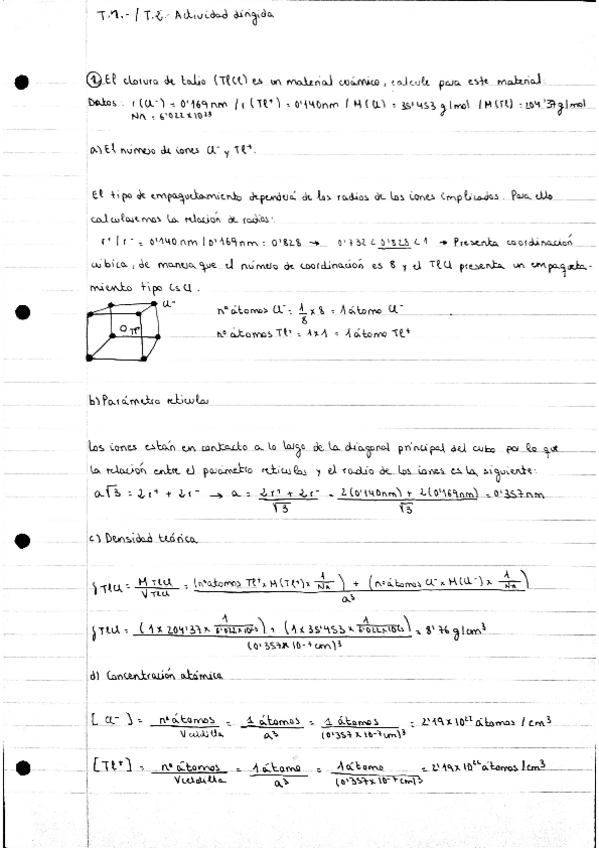 T.1.- / T.2.- Actividad dirigida
1. El cloruro de talio (TlCl) es un material cerámico, calcule para este material
Datos: r(Cl⁻) = 0'169 nm / r(Tl⁺) = 0'140nm / M(Cl) = 35'453 g/mol / M(Tl) = 204'37g/mol
NA = 6'022x10²³
a) El número de iones Cl⁻ y Tl⁺.
El tipo de empaquetamiento dependerá de los radios de los iones implicados. Para ello
calcularemos la relación de radios:
r⁺/r⁻ = 0'140nm/0'169nm = 0'828 → 0'732 < 0'828 < 1 → Presenta coordinación
cúbica, de manera que el número de coordinación es 8 y el TlCl presenta un empaqueta-
miento tipo CsCl.
Cl⁻
Tl⁺
nº átomos Cl⁻ = 1/8 x 8 = 1 átomo Cl⁻
nº átomos Tl⁺ = 1x1 = 1 átomo Tl⁺
b) Parámetro reticular
Los iones están en contacto a lo largo de la diagonal principal del cubo por lo que
la relación entre el parámetro reticular y el radio de los iones es la siguiente:
a√3 = 2r⁺ + 2r⁻ → a = (2r⁺ + 2r⁻)/√3 = (2(0'140nm) + 2(0'169nm))/√3 = 0'357nm
c) Densidad teórica
ρTlCl = M TlCl / V TlCl = ((nº átomos Tl⁺ x M(Tl⁺) x 1/NA) + (nº átomos Cl⁻ x M(Cl⁻) x 1/NA)) / a³
ρTlCl = ((1 x 204'37 x 1/6'022x10²³) + (1 x 35'453 x 1/6'022x10²³)) / (0'357x10⁻⁷cm)³ = 8'76 g/cm³
d) Concentración atómica
[Cl⁻] = nº átomos / V celdilla = 1 átomos / a³ = 1 átomos / (0'357x10⁻⁷cm)³ = 2'19x10²² átomos/cm³
[Tl⁺] = nº átomos / V celdilla = 1 átomo / a³ = 1 átomo / (0'357x10⁻⁷cm)³ = 2'19x10²² átomos/cm³